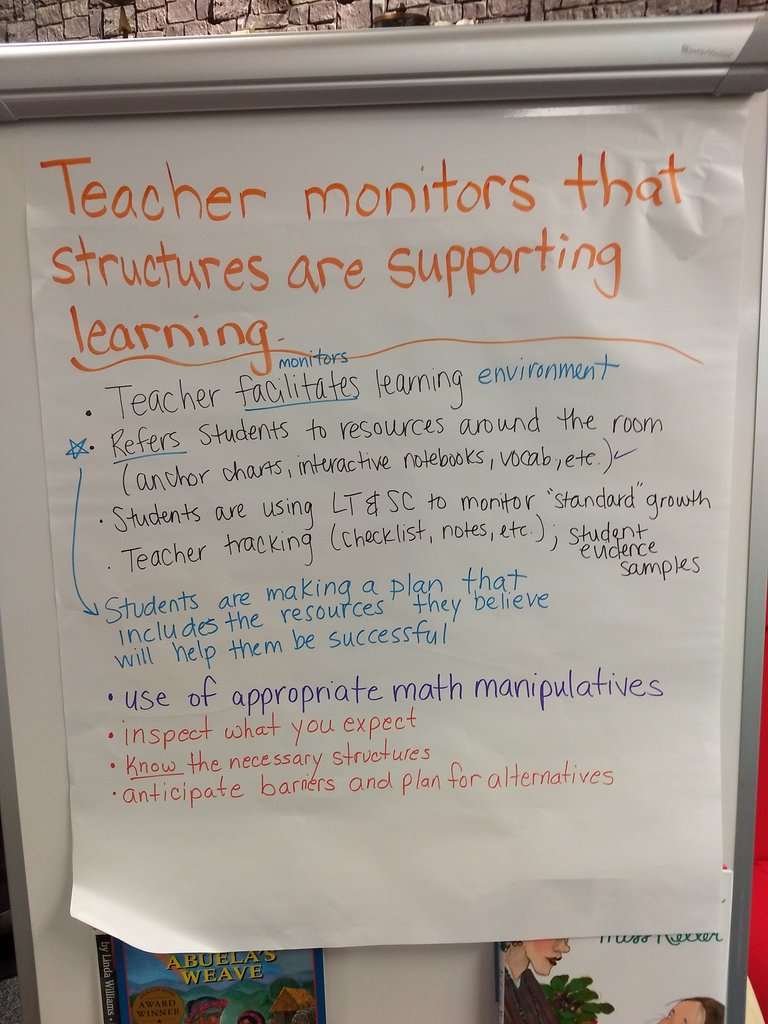 MasterVision
Teacher monitors that
structures are supporting
learning.
monitors
• Teacher facilitates learning environment
• Refers Students to resources around the room
(anchor charts, interactive notebooks, vocab, etc.)
• Students are using LT & SC to monitor "standard" growth
• Teacher tracking (checklist, notes, etc.); student
evidence
samples
Students are making a plan that
includes the resources they believe
will help them be successful
• use of appropriate math manipulatives
• inspect what you expect
• Know the necessary structures
• anticipate barriers and plan for alternatives
by Linda Williams
ABUELA'S
WEAVE
AWARD
WINNER
Miss Keller